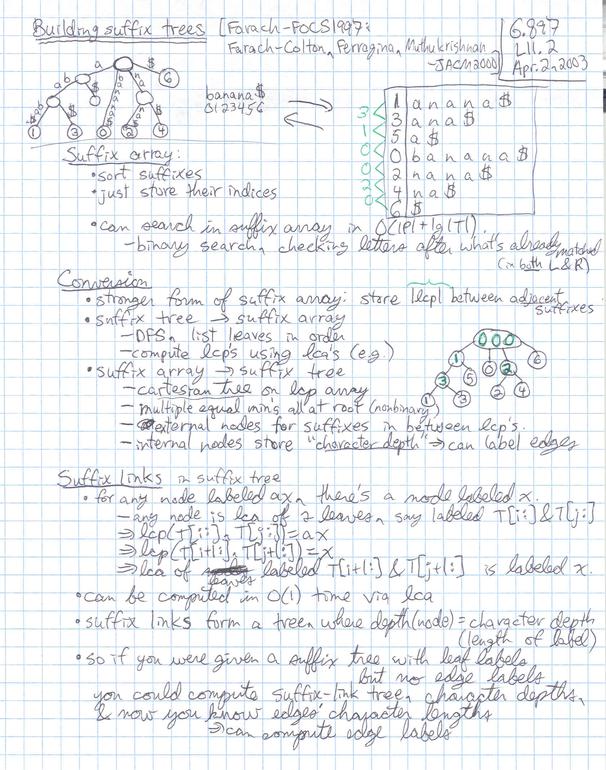 Building suffix trees [Farach-FOCS1997;
Farach-Colton, Ferragina, Muthukrishnan
-JACM2000]
6.897
L11.2
Apr. 2, 2003
a
$
6
banana$
0123456
1 3 0 2 4
3
1
0
0
2
0
1 anana$
3 ana$
5 a$
0 banana$
2 nana$
4 na$
6 $
Suffix array:
• sort suffixes
• just store their indices
• can search in suffix array in O(|P|+lg|T|).
- binary search, checking letters after what's already matched
(in both L&R)
Conversion
• stronger form of suffix array: store |lcp| between adjacent
suffixes
• suffix tree → suffix array
- DFS, list leaves in order
- compute lcp's using lca's (e.g.)
• suffix array → suffix tree
- cartesian tree on lcp array
- multiple equal min's all at root (nonbinary)
- external nodes for suffixes in between lcp's.
- internal nodes store "character depth" ⇒ can label edges
0 0 0
1 0 2 6
3 5 2 4
1 3
Suffix links in suffix tree
• for any node labeled ax, there's a node labeled x.
- any node is lca of 2 leaves, say labeled T[i:] & T[j:]
⇒ lcp(T[i:], T[j:]) = ax
⇒ lcp(T[i+1:], T[j+1:]) = x
⇒ lca of leaves labeled T[i+1:] & T[j+1:] is labeled x.
• can be computed in O(1) time via lca
• suffix links form a tree, where depth(node) = character depth
(length of label)
• so if you were given a suffix tree with leaf labels
but no edge labels
you could compute suffix-link tree, character depths,
& now you know edges' character lengths
⇒ can compute edge labels